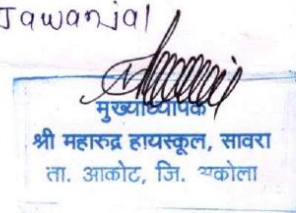 Jawanjal
मुख्याध्यापक
श्री महारुद्र हायस्कूल, सावरा
ता. आकोट, जि. अकोला